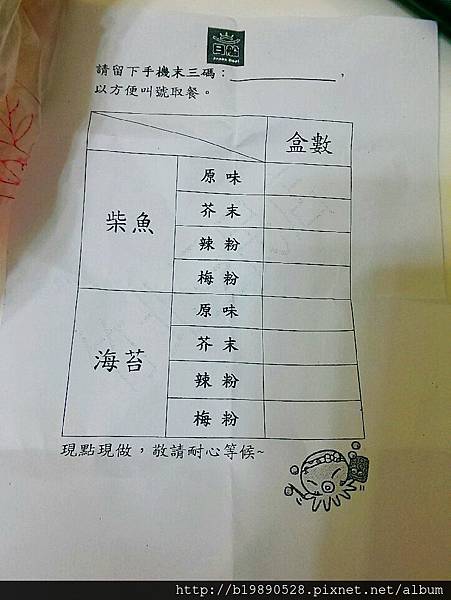 日船
請留下手機末三碼：＿＿＿＿＿＿，
以方便叫號取餐。
盒數
柴魚
原味
芥末
辣粉
梅粉
海苔
原味
芥末
辣粉
梅粉
現點現做，敬請耐心等候~
http://b19890528.pixnet.net/album